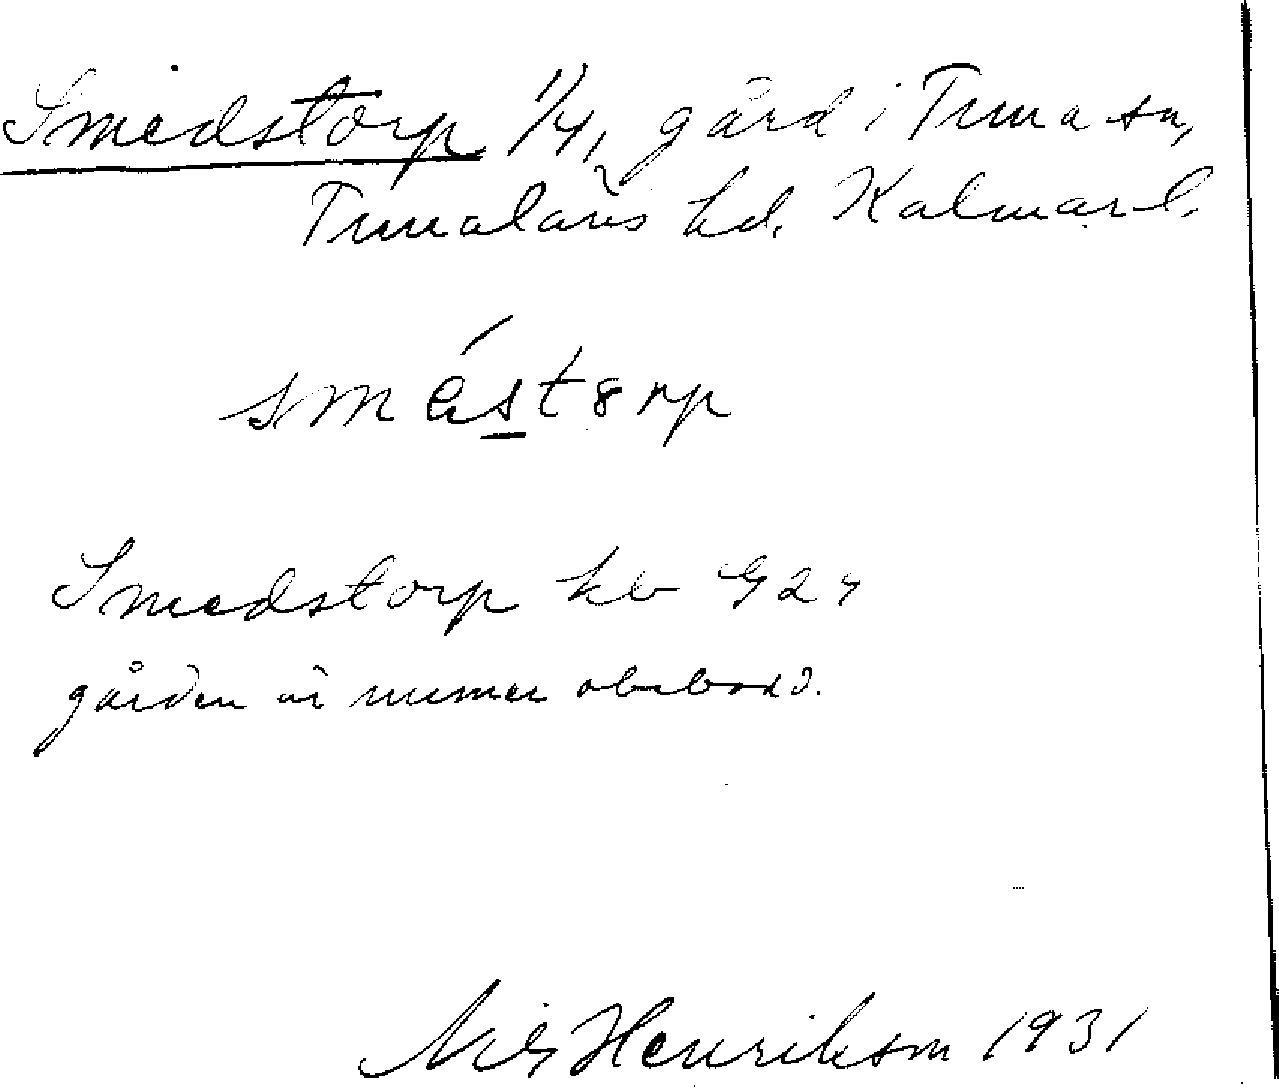 Smedstorp 1/4, gård i Tuna sn,
Tunaläns hd. Kalmar l.
sméstorp
Smedstorp kb 924
gården är numer obebodd.
Nils Henriksson 1931